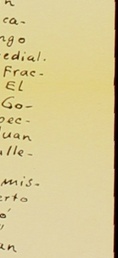 n
ca-
ngo
edial.
Frac-
El
Go-
pec-
Juan
alle-
mis-
erto
ó
"
an